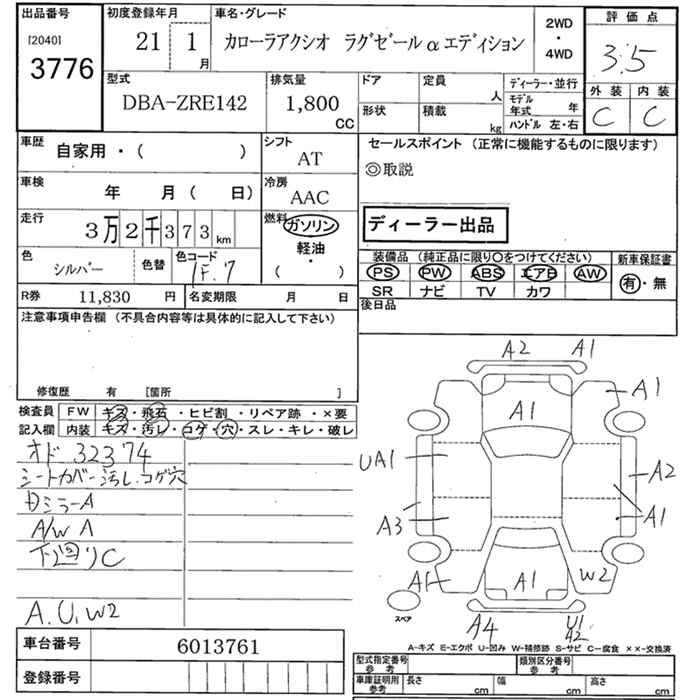 出品番号 初度登録年月 車名・グレード 2WD・4WD 評価点
[2040]
3776 21 1月 カローラアクシオ ラグゼール α エディション 3.5
型式 排気量 ドア 定員 人 ディーラー・並行 外装 内装
DBA-ZRE142 1,800 CC 形状 積載 kg モデル年式 年 C C
ハンドル 左・右
車歴 自家用・( ) シフト AT セールスポイント (正常に機能するものに限ります)
◎取説
車検 年 月 ( 日) 冷房 AAC
走行 3万2千373km 燃料 ガソリン 軽油・( ) ディーラー出品
色 シルバー 色替 色コード 1F7 装備品 (純正品に限り○をつけてください) 新車保証書
PS PW ABS エアB AW 有・無
SR ナビ TV カワ
R券 11,830 円 名変期限 月 日 後日品
注意事項申告欄 (不具合内容等は具体的に記入して下さい)
修復歴 有 [箇所 ]
検査員 FW キズ・飛石・ヒビ割・リペア跡・×要
記入欄 内装 キズ・汚レ・コゲ・穴・スレ・キレ・破レ
オド 32374
シートカバー汚レ.コゲ穴
ミラーA
A/W A
下廻りC
A.U.W2
A2 A1
A1 A1
UA1 A2
A3 A1
A1 A1 W2
スペア
A4 U1
A2
A-キズ E-エクボ U-凹み W-補修跡 S-サビ C-腐食 ××-交換済
車台番号 6013761
登録番号
型式指定番号 参考 類別区分番号 参考
車庫証明用 参考 長さ cm 幅 cm 高さ cm